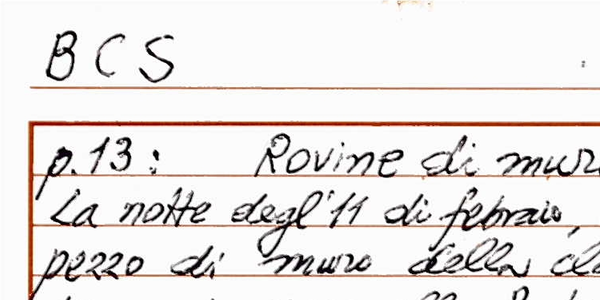 BCS
p.13: Rovine di mur
La notte degl'11 di febraio,
pezzo di muro della